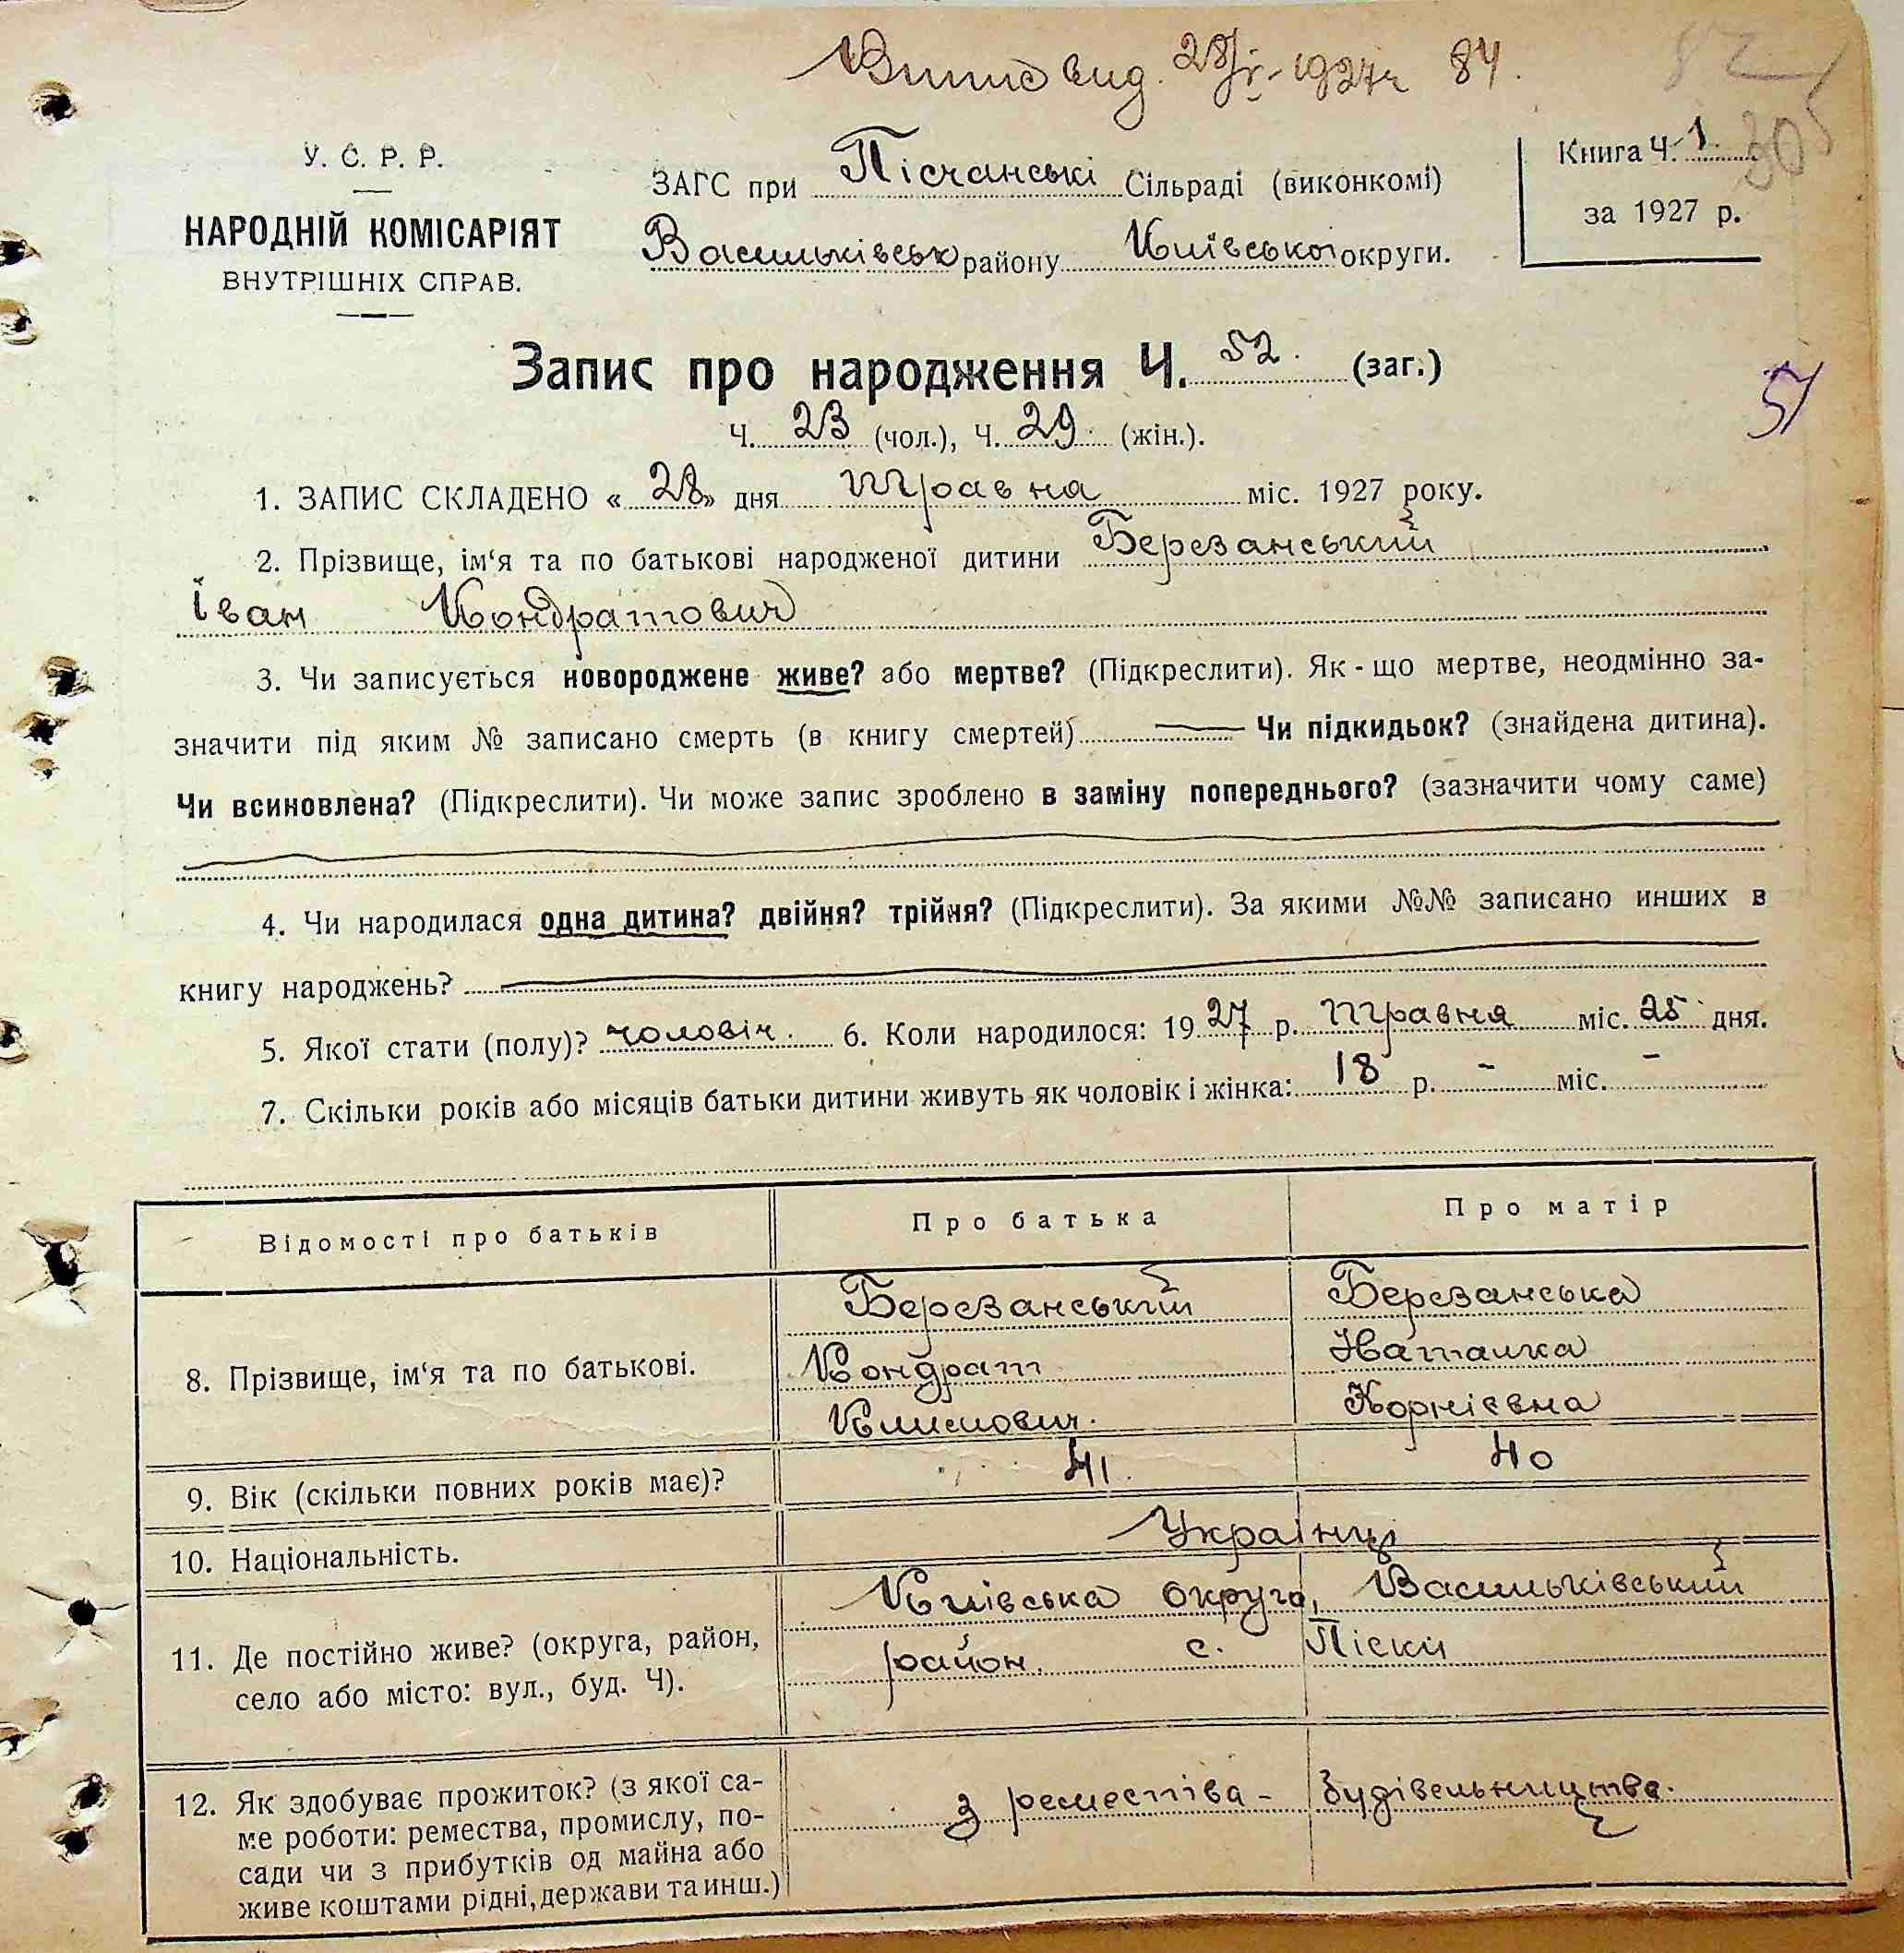 Випис вид. 28/V-1927 р 84.
82
305
У. С. Р. Р.
НАРОДНІЙ КОМІСАРІЯТ
ВНУТРІШНІХ СПРАВ.
ЗАГС при Пісчанські Сільраді (виконкомі)
Васильківськ району Київської округи.
Книга Ч. 1.
за 1927 р.
Запис про народження Ч. 52. (заг.)
51
Ч. 23 (чол.), Ч. 29 (жін.).
1. ЗАПИС СКЛАДЕНО «28» дня травня міс. 1927 року.
2. Прізвище, ім‘я та по батькові народженої дитини Березанський
Іван Кондратович
3. Чи записується новороджене живе? або мертве? (Підкреслити). Як-що мертве, неодмінно за-
значити під яким № записано смерть (в книгу смертей) — Чи підкидьок? (знайдена дитина).
Чи всиновлена? (Підкреслити). Чи може запис зроблено в заміну попереднього? (зазначити чому саме)
4. Чи народилася одна дитина? двійня? трійня? (Підкреслити). За якими №№ записано инших в
книгу народжень?
5. Якої стати (полу)? чоловіч. 6. Коли народилося: 1927 р. травня міс. 25 дня.
7. Скільки років або місяців батьки дитини живуть як чоловік і жінка: 18 р. - міс. -
Відомості про батьків
Про батька
Про матір
8. Прізвище, ім‘я та по батькові.
Березанський
Кондрат
Климович.
Березанська
Наталка
Корнієвна
9. Вік (скільки повних років має)?
41.
40
10. Національність.
Українці
11. Де постійно живе? (округа, район,
село або місто: вул., буд. Ч).
Київська округа, Васильківський
район. с. Піски
12. Як здобуває прожиток? (з якої са-
ме роботи: ремества, промислу, по-
сади чи з прибутків од майна або
живе коштами рідні, держави та инш.)
з ремества - будівельництва.